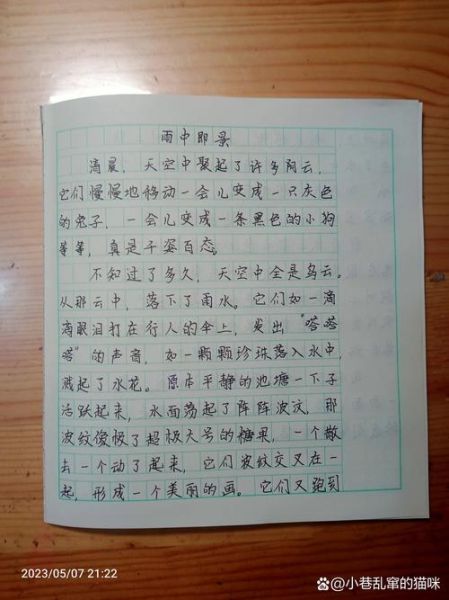 雨中即景
清晨，天空中聚起了许多阴云，
它们慢慢地移动一会儿变成一只灰色
的兔子，一会儿变成一条黑色的小狗
等等，真是千姿百态。
不知过了多久，天空中全是乌云。
从那云中，落下了雨水。它们如一滴
滴眼泪打在行人的伞上，发出“嗒嗒
嗒”的声音，如一颗颗珍珠落入水中，
溅起了水花。原本平静的池塘一下子
活跃起来，水面荡起了阵阵波汶，那
波纹像极了超极大号的糖果，一个散
去一个动了起来，它们波纹交叉在一
起，形成一个美丽的画。它们又跑到
2023/05/07 21:22
@小巷乱窜的猫咪